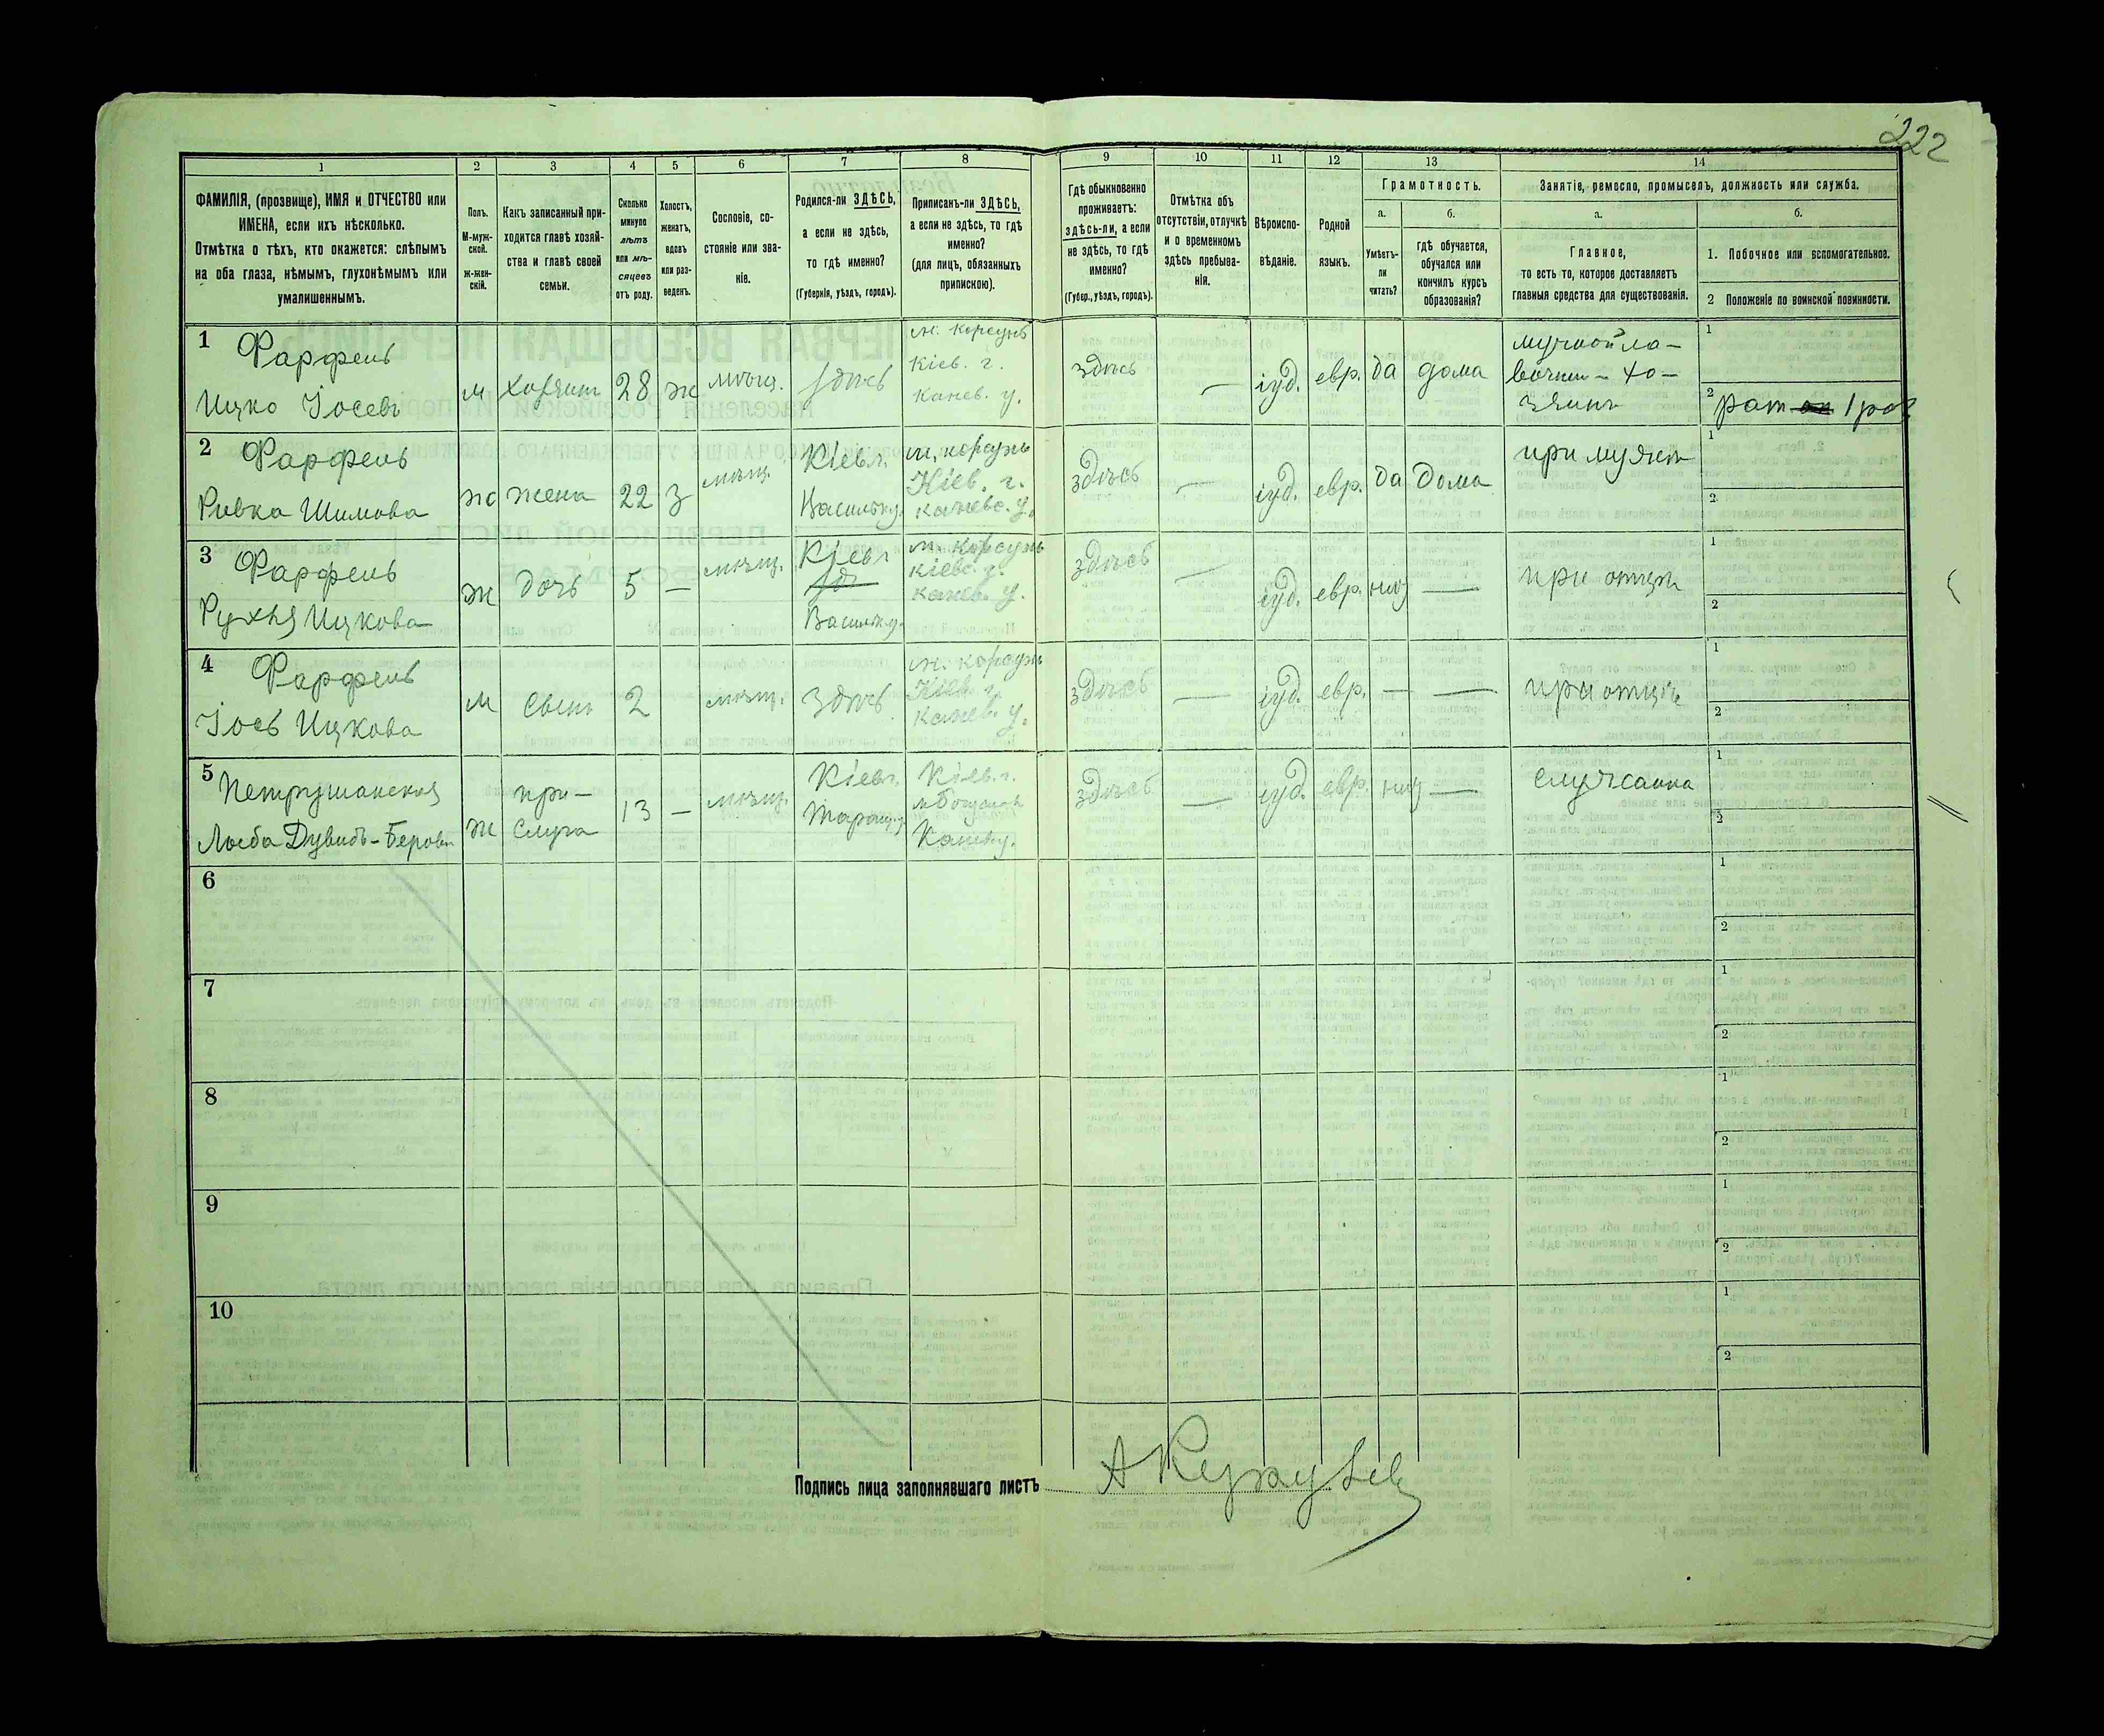 222
1 2 3 4 5 6 7 8 9 10 11 12 13 14
ФАМИЛІЯ, (прозвище), ИМЯ и ОТЧЕСТВО или
ИМЕНА, если ихъ нѣсколько.
Отмѣтка о тѣхъ, кто окажется: слѣпымъ
на оба глаза, нѣмымъ, глухонѣмымъ или
умалишеннымъ.
Полъ.
М-муж-
ской.
ж-жен-
скій.
Какъ записанный при-
ходится главѣ хозяй-
ства и главѣ своей
семьи.
Сколько
минуло
лѣтъ
или мѣ-
сяцевъ
отъ роду.
Холостъ,
женатъ,
вдовъ
или раз-
веденъ.
Сословіе, со-
стояніе или зва-
ніе.
Родился-ли ЗДѢСЬ,
а если не здѣсь,
то гдѣ именно?
(Губернія, уѣздъ, городъ).
Приписанъ-ли ЗДѢСЬ,
а если не здѣсь, то гдѣ
именно?
(для лицъ, обязанныхъ
припискою).
Гдѣ обыкновенно
проживаетъ:
здѣсь-ли, а если
не здѣсь, то гдѣ
именно?
(Губер., уѣздъ, городъ).
Отмѣтка объ
отсутствіи, отлучкѣ
и о временномъ
здѣсь пребыва-
ніи.
Вѣроиспо-
вѣданіе.
Родной
языкъ.
Грамотность.
а.
Умѣетъ-
ли
читать?
б.
гдѣ обучается,
обучался или
кончилъ курсъ
образованія?
Занятіе, ремесло, промыселъ, должность или служба.
а.
Главное,
то есть то, которое доставляетъ
главныя средства для существованія.
б.
1. Побочное или вспомогательное.
2 Положеніе по воинской повинности.
1 Фарфель
Ицко Іосевъ
м
хозяинъ
28
ж
мѣщ.
здѣсь
м. Корсунь
Кіев. г.
Канев. у.
здѣсь
—
іуд.
евр.
да
дома
мучной ла-
вочки - хо-
зяинъ
1
2 рат. 1 раз.
2 Фарфель
Ривка Шимова
ж
жена
22
з
мѣщ.
Кіев г.
Васильк у.
м. Корсунь
Кіев. г.
Каневс. у.
здѣсь
—
іуд.
евр.
да
дома
при мужѣ
1
2
3 Фарфель
Рухля Ицкова
ж
дочь
5
—
мѣщ.
Кіев г
Васильк у.
м. Корсунь
Кіевс. г.
Канев. у.
здѣсь
—
іуд.
евр.
нѣт
—
при отцѣ
1
2
4 Фарфель
Іось Ицкова
м
сынъ
2
мѣщ.
здѣсь
м. Корсунь
Кіев. г.
Канев. у.
здѣсь
—
іуд.
евр.
—
—
при отцѣ
1
2
5 Петрушанская
Люба Дувидъ-Берова
ж
при-
слуга
13
—
мѣщ.
Кіев г.
Таращ. у.
Кіев. г.
м Богуслав
Канев у.
здѣсь
—
іуд.
евр.
нѣт
—
служанка
1
2
6
1
2
7
1
2
8
1
2
9
1
2
10
1
2
Подпись лица заполнявшаго листъ